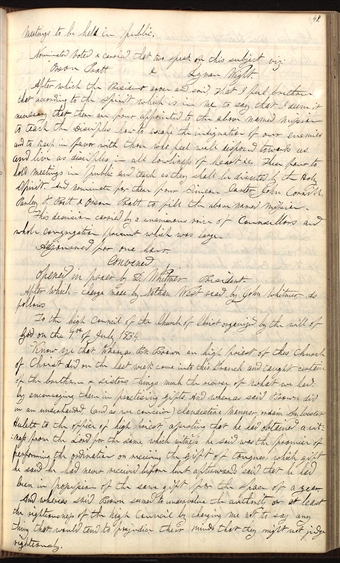 41
meetings to be held in public.
Nominated voted & carried that two speak on this subject viz
Orson Pratt & Lyman Wight
After which the President arose and said that I feel brethren
that according to the spirit which is in me to say that I deem it
necessary that there are four appointed to the above named mission
to teach the disciples how to escape the indignation of our enemies
and to keep in favor with those who feel well disposed towards us
and live as disciples in all lowliness of heart &c. Then four to
hold meetings in public and teach as they shall be directed by the Holy
Spirit And nominate for these four Simeon Carter, John Corrill
Parley P. Pratt & Orson Pratt to fill the above named mission.
This decision carried by a unanimous voice of Counsellors and
whole congregation present which was large
Adjourned for one hour
Convened
Opened in prayer by D. Whitmer President.
After which a charge made by Nathan West read by John Whitmer as
follows
To the high Council of the Church of Christ organized by the will of
God on the 7th of July 1834.
Know ye that whereas Br. Brown an high priest of this Church
of Christ did on the last week come into this branch and taught certain
of the brethren & sisters things much the reverse of what we had
by encouraging them in practising gifts. And whereas said Brown did
in an unauthorized (and as we conceive) clandestine manner, ordain Sylvester
Hulett to the office of high Priest, affirming that he had obtained a wit-
ness from the Lord for the same which witness he said was the promise of
performing the ordination on receiving the gift of tongues which gift
he said he had never received before but afterward said that he had
been in possession of the same gift for the space of a year
And whereas said Brown seemed to undervalue the authority or at least
the righteousness of the high Council by charging me not to say any
thing that would tend to prejudice their minds that they might not judge
righteously.